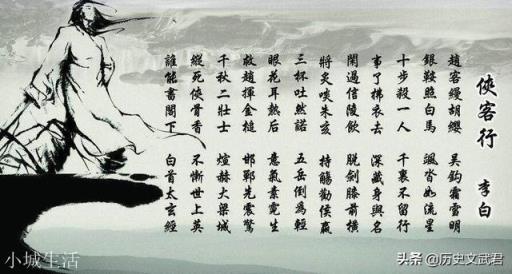 俠客行 李白
趙客縵胡纓 吳鉤霜雪明
銀鞍照白馬 颯沓如流星
十步殺一人 千裏不留行
事了拂衣去 深藏身與名
閑過信陵飲 脫劍膝前橫
將炙啖朱亥 持觴勸侯嬴
三杯吐然諾 五岳倒為輕
眼花耳熱后 意氣素霓生
救趙揮金槌 邯鄲先震驚
千秋二壯士 煊赫大梁城
縱死俠骨香 不慚世上英
誰能書閣下 白首太玄經
小城生活
头条 @历史文武君